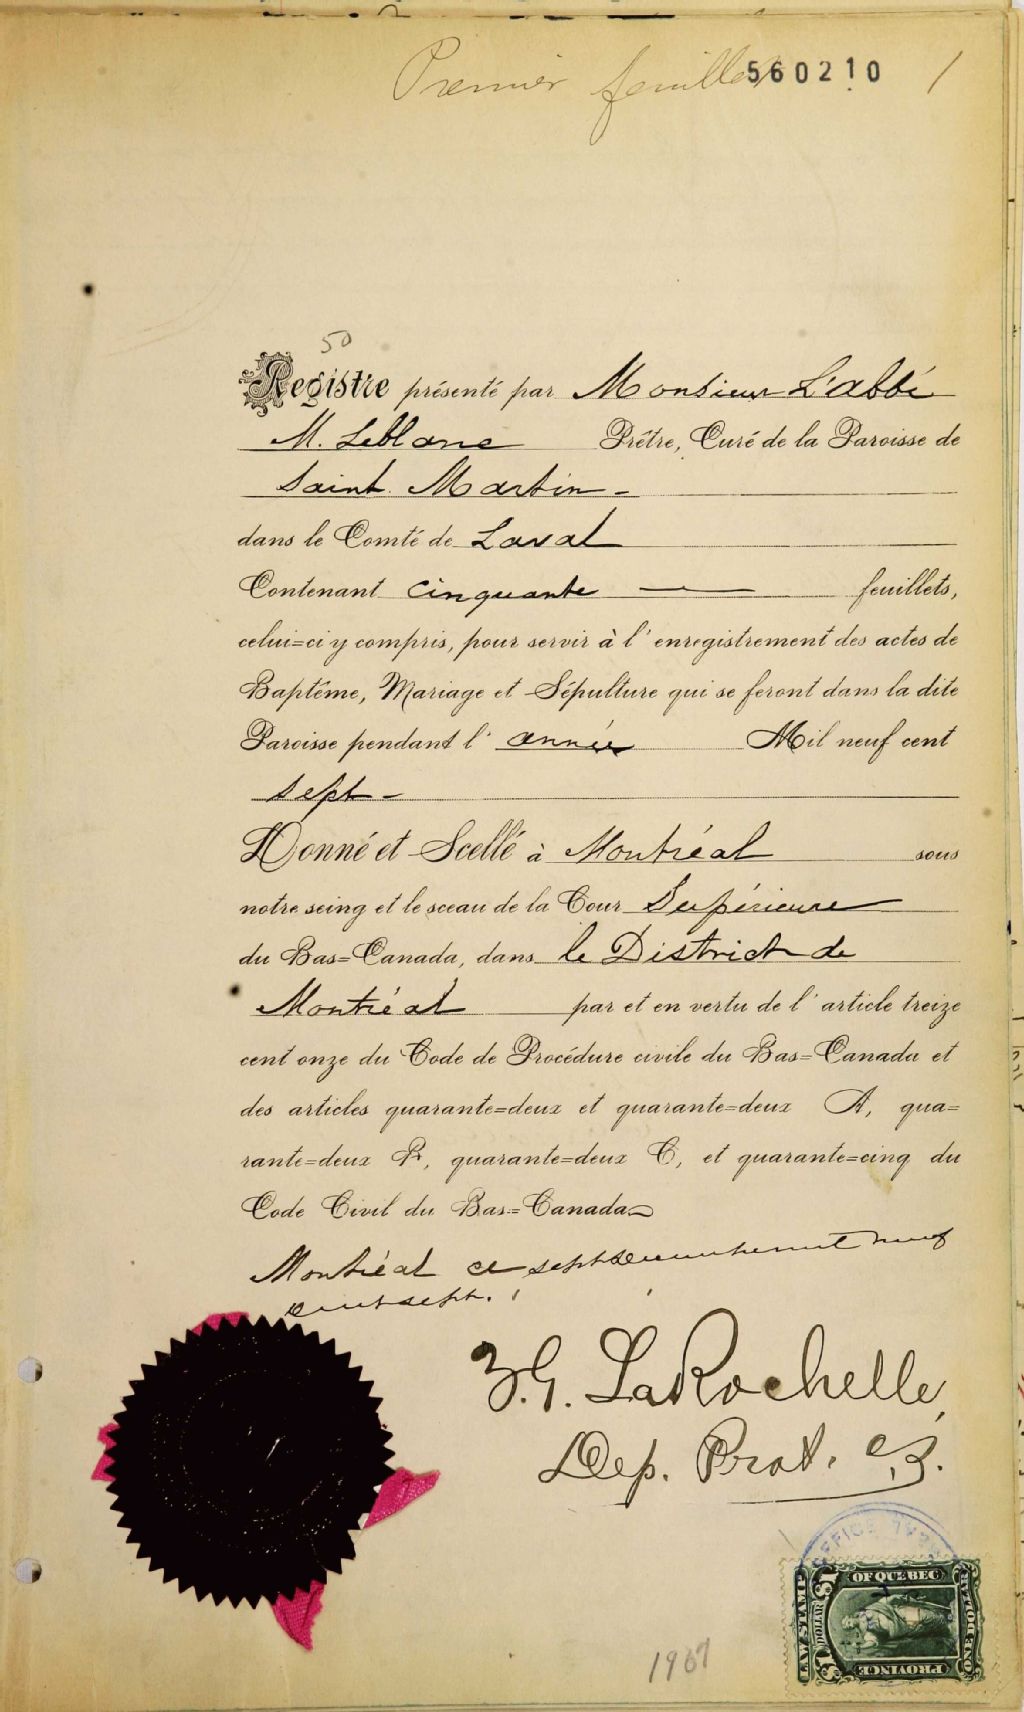 Premier feuillet 560210 1
50
Registre présenté par Monsieur L'abbé
M. Leblanc Prêtre, Curé de la Paroisse de
Saint Martin -
dans le Comté de Laval
Contenant cinquante — feuillets,
celui=ci y compris, pour servir à l'enregistrement des actes de
Baptême, Mariage et Sépulture qui se feront dans la dite
Paroisse pendant l'année Mil neuf cent
sept -
Donné et Scellé à Montréal sous
notre seing et le sceau de la Cour Supérieure
du Bas=Canada, dans le District de
Montréal par et en vertu de l'article treize
cent onze du Code de Procédure civile du Bas=Canada et
des articles quarante=deux et quarante=deux A, qua=
rante=deux B, quarante=deux C, et quarante=cinq du
Code Civil du Bas=Canada
Montréal ce sept neuf
cent sept.
LaRochelle,
Dep. Prot. C.S.
OFFICE
LAW STAMP
$1 DOLLAR $1
OF QUEBEC
PROVINCE
ONE DOLLAR
1907